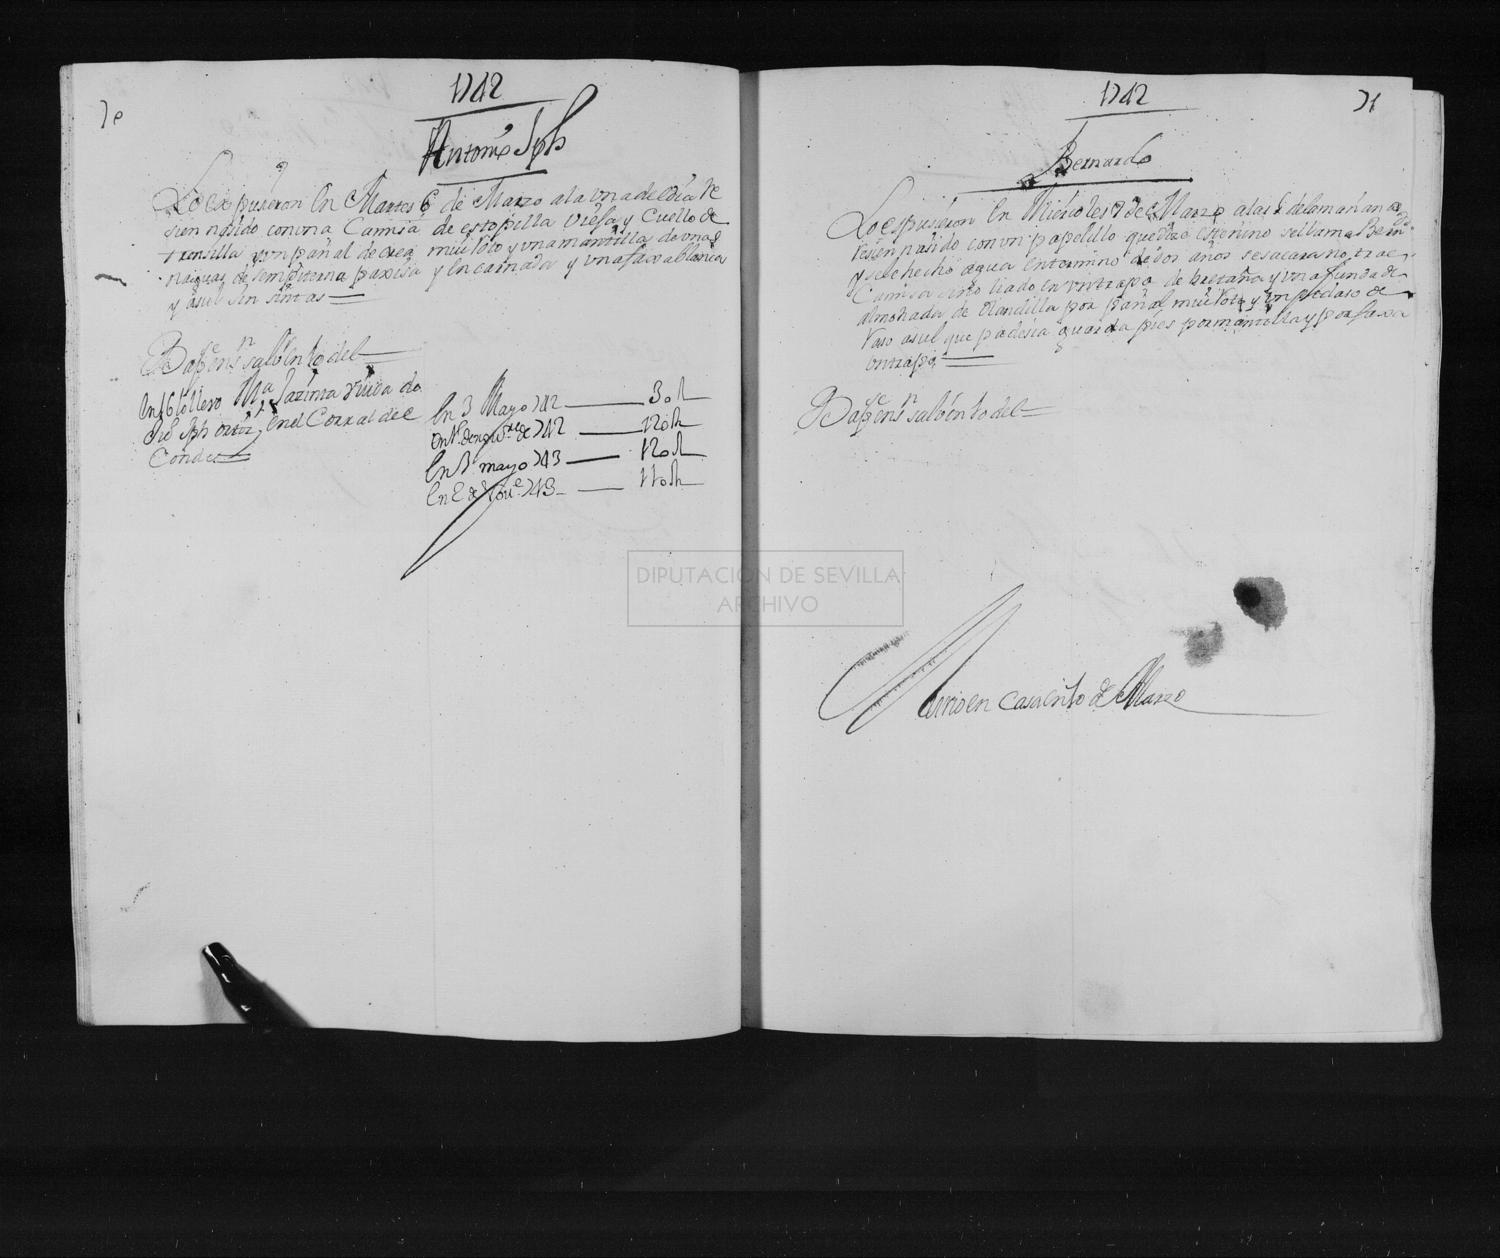 1742
70
Antonio Jph
Lo expusieron en Martes 6 de Marzo a la una del dia Re
sien nasido con una Camisa de estopilla Viesa y Cuello de
trensilla y un pañal de crea mui Roto y una mantilla de unas
naguas de sempiterna paxisa y encarnada y una faxa blanca
y asul sin sintas
Bapse en Sn salbor en to del
en 16 lo llevo Ma Jazinta viuda de
Jph ortiz, en el Corral del
Conde
en 3 Mayo 742 30 R
742 120 R
en mayo 743 120 R
en 2 de Nove 743 110 R
1742
71
Bernardo
Lo expusieron en Miercoles 7 de Marzo a las de la mañana
Resien nasido con un papelillo que dise este nino se llama Bernardo
y se le hecho agua en termino de dos años se sacara no trae
Camisa sino liado en un trapo de bretaña y una funda de
almohada de olandilla por pañal mui Rota y un pedaso de
Raso asul que paresia guarda pies por mantilla y por faxa
un trapo
Bapse en Sn salbor en to del
Murio en casa en to de Marzo
DIPUTACIÓN DE SEVILLA
ARCHIVO